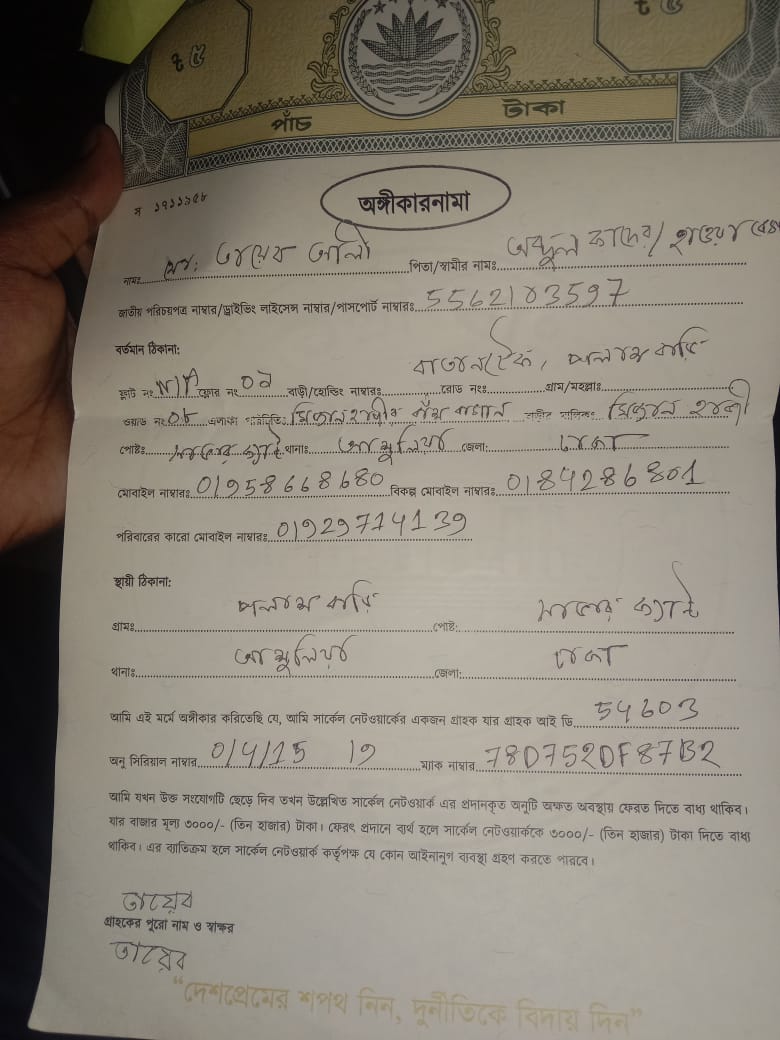 ৳ ৫
৳ ৫
পাঁচ টাকা
অঙ্গীকারনামা
নামঃ মোঃ তায়েব আলী পিতা/স্বামীর নামঃ আব্দুল কাদের/
জাতীয় পরিচয়পত্র নাম্বার/ড্রাইভিং লাইসেন্স নাম্বার/পাসপোর্ট নাম্বারঃ 5562103597
বর্তমান ঠিকানা:
ফ্লাট নং N/A ফ্লোর নং ০২ বাড়ী/হোল্ডিং নাম্বারঃ রোড নংঃ গ্রাম/মহল্লাঃ পলাশ বাড়ি
ওয়ার্ড নং ০৮ এলাকা পরিচিতিঃ বাড়ীর মালিকঃ
পোষ্টঃ থানাঃ আশুলিয়া জেলা: ঢাকা
মোবাইল নাম্বারঃ 01958668680 বিকল্প মোবাইল নাম্বারঃ 0184286801
পরিবারের কারো মোবাইল নাম্বারঃ 01929714139
স্থায়ী ঠিকানা:
গ্রামঃ পলাশ বাড়ি পোষ্ট:
থানাঃ আশুলিয়া জেলা: ঢাকা
আমি এই মর্মে অঙ্গীকার করিতেছি যে, আমি সার্কেল নেটওয়ার্কের একজন গ্রাহক যার গ্রাহক আই ডি 54603
অনু সিরিয়াল নাম্বার 0/4/15 19 ম্যাক নাম্বার 78D752DF87B2
আমি যখন উক্ত সংযোগটি ছেড়ে দিব তখন উল্লেখিত সার্কেল নেটওয়ার্ক এর প্রদানকৃত অনুটি অক্ষত অবস্থায় ফেরত দিতে বাধ্য থাকিব।
যার বাজার মূল্য ৩০০০/- (তিন হাজার) টাকা। ফেরৎ প্রদানে ব্যর্থ হলে সার্কেল নেটওয়ার্ককে ৩০০০/- (তিন হাজার) টাকা দিতে বাধ্য
থাকিব। এর ব্যতিক্রম হলে সার্কেল নেটওয়ার্ক কর্তৃপক্ষ যে কোন আইনানুগ ব্যবস্থা গ্রহণ করতে পারবে।
তায়েব
গ্রাহকের পুরো নাম ও স্বাক্ষর
তায়েব
“দেশপ্রেমের শপথ নিন, দুর্নীতিকে বিদায় দিন”